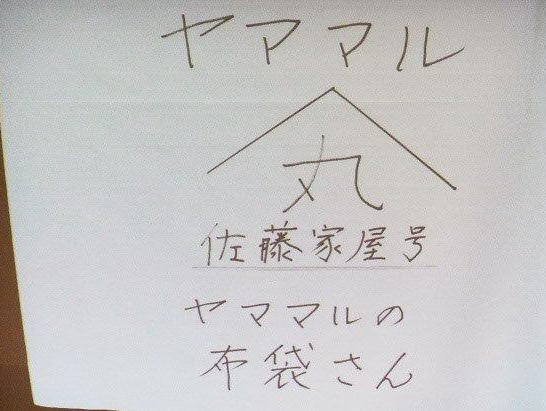 ヤママル
丸
佐藤家屋号
ヤママルの
布袋さん